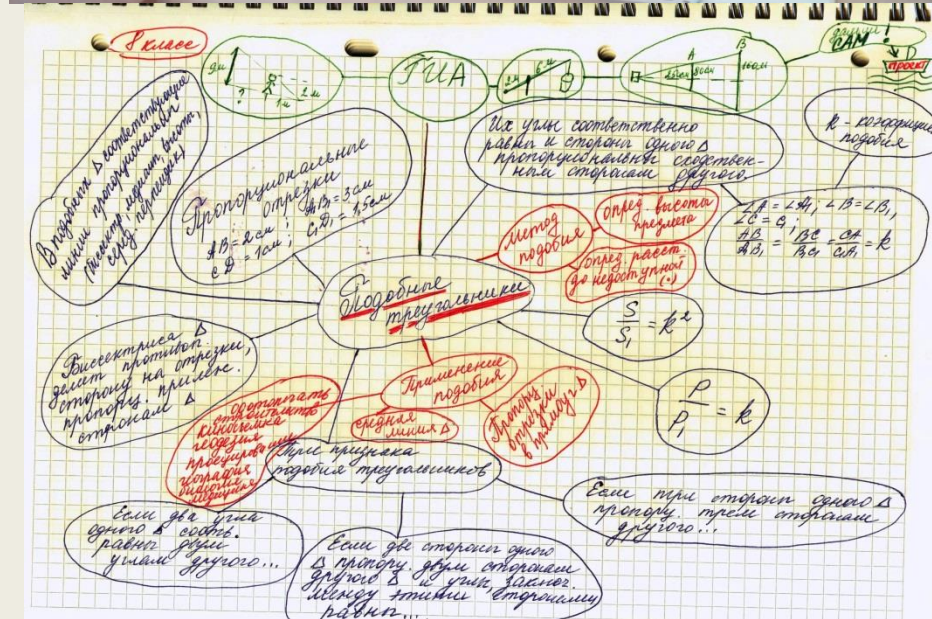 8 класс
9м
?
1м
2м
ГИА
6м
A
B
80см
160см
САМ!
проект
В подобных Δ соответствующие
линии пропорциональны
(биссектр, медиант, высота,
серед. перпендик)
Пропорциональные
отрезки
AB=2см; A₁B₁=3см
CD=1см; C₁D₁=1,5см
Их углы соответственно
равны и стороны одного Δ
пропорциональны сходствен-
ным сторонам другого.
k - коэффициент
подобия
∠A=∠A₁, ∠B=∠B₁,
∠C=C₁;
AB/A₁B₁ = BC/B₁C₁ = CA/C₁A₁ = k
метод
подобия
опред. высоты
предмета
опред. расст
до недоступной (·)
Подобные
треугольники
S/S₁ = k²
P/P₁ = k
Биссектриса Δ
делит противоп.
сторону на отрезки,
пропорц. прилеж.
сторонам Δ
Применение
подобия
средняя
линия Δ
Пропорц
отрезки
в прямоуг Δ
строительство
киносъёмка
геодезия
проецирование
география
биология
медицина
Три признака
подобия треугольников
Если два угла
одного Δ соотв.
равны двум
углам другого...
Если две стороны одного
Δ пропорц. двум сторонам
другого Δ и углы, заключ.
между этими сторонами
равны...
Если три стороны одного Δ
пропорц. трем сторонам
другого...